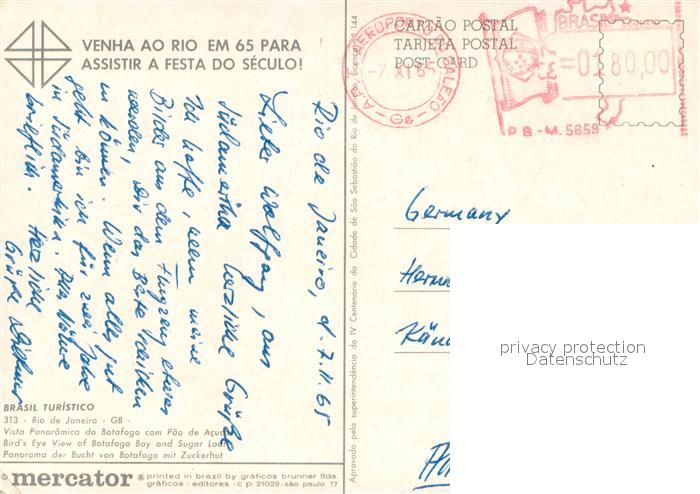 VENHA AO RIO EM 65 PARA
ASSISTIR A FESTA DO SÉCULO!
Rio de Janeiro, d. 7.11.65
Lieber Wolfgang, aus
Südamerika herzliche Grüße
Ich hoffe, wenn meine
Bilder aus dem Flugzeug etwas
werden, Dir das Beste schicken
zu können. Wenn alles gut
geht bin ich für zwei Jahre
in Südamerika. Alles Nähere
brieflich. Herzliche
Grüße
BRASIL TURÍSTICO
313 - Rio de Janeiro - GB -
Vista Panorâmica do Botafogo com Pão de Açuc
Bird's Eye View of Botafogo Bay and Sugar Loaf
Panorama der Bucht von Botafogo mit Zuckerhut
mercator ® printed in brazil by gráficos brunner ltda.
gráficos - editores - c p. 21029 - são paulo 17
Aprovado pela superintendência do IV Centenário da Cidade de São Sebastião do Rio de Janeiro, licença 144
CARTÃO POSTAL
TARJETA POSTAL
POST-CARD
-7 XI 65
BRASIL
=0180,00
P B - M. 5859
Germany
privacy protection
Datenschutz